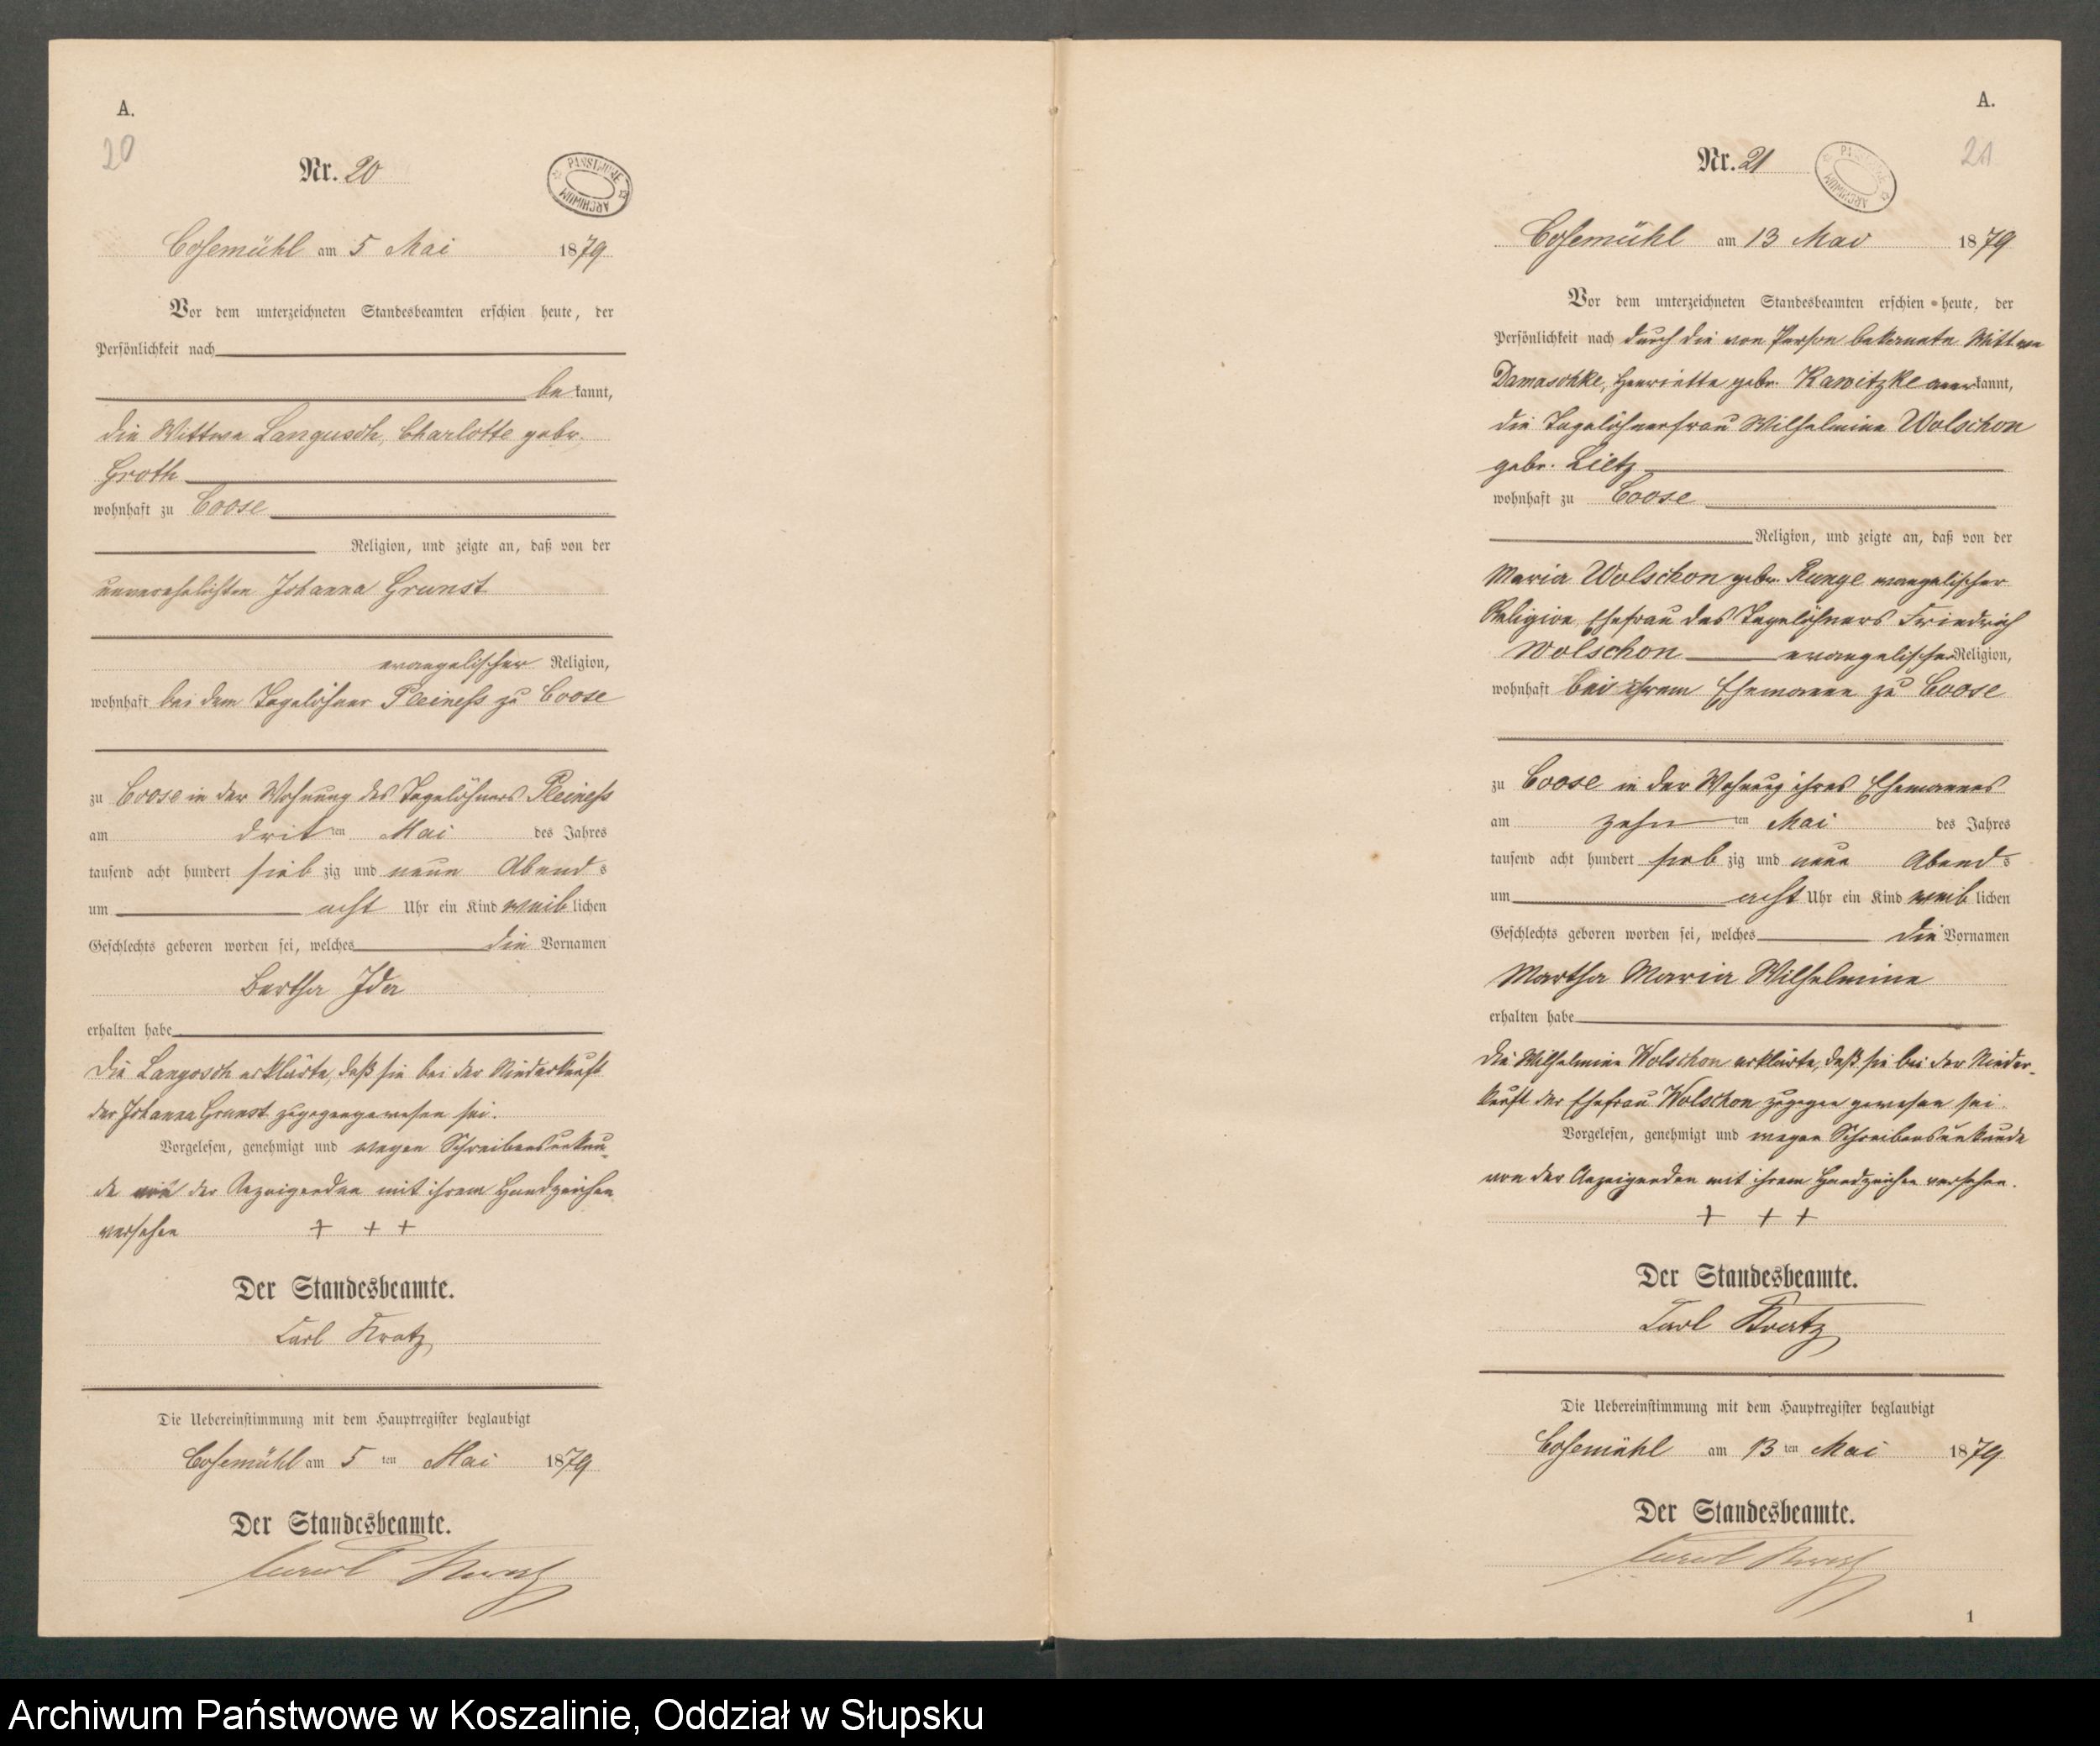 A.
20
Nr. 20
PAŃSTWOWE ARCHIWUM
Cosemühl am 5 Mai 1879
Vor dem unterzeichneten Standesbeamten erschien heute, der
Persönlichkeit nach
bekannt,
die Wittwe Langusch, Charlotte gebr.
Groth
wohnhaft zu Coose
Religion, und zeigte an, daß von der
unverehelichten Johanna Grunst
evangelischer Religion,
wohnhaft bei dem Tagelöhner Pleiness zu Coose
zu Coose in der Wohnung des Tagelöhners Pleiness
am dritten Mai des Jahres
tausend acht hundert siebzig und neun Abends
um acht Uhr ein Kind weiblichen
Geschlechts geboren worden sei, welches die Vornamen
Bertha Ida
erhalten habe
Die Langosch erklärte, daß sie bei der Niederkunft
der Johanna Grunst zugegengewesen sei.
Vorgelesen, genehmigt und wegen Schreibensunkun-
de von der Anzeigenden mit ihrem Handzeichen
versehen + + +
Der Standesbeamte.
Carl Kratz
Die Uebereinstimmung mit dem Hauptregister beglaubigt
Cosemühl am 5 ten Mai 1879
Der Standesbeamte.
Carl Kratz
A.
21
Nr. 21
PAŃSTWOWE ARCHIWUM
Cosemühl am 13 Mai 1879
Vor dem unterzeichneten Standesbeamten erschien heute, der
Persönlichkeit nach durch die von Person bekannte Wittwe
Damaschke, Henriette gebr. Kawitzke anerkannt,
die Tagelöhnerfrau Wilhelmine Wolschon
gebr. Lietz
wohnhaft zu Coose
Religion, und zeigte an, daß von der
Maria Wolschon gebr. Runge evangelischer
Religion Ehefrau des Tagelöhners Friedrich
Wolschon evangelischer Religion,
wohnhaft bei ihrem Ehemanne zu Coose
zu Coose in der Wohnung ihres Ehemannes
am zehnten Mai des Jahres
tausend acht hundert siebzig und neun Abends
um acht Uhr ein Kind weiblichen
Geschlechts geboren worden sei, welches die Vornamen
Martha Maria Wilhelmine
erhalten habe
Die Wilhelmine Wolschon erklärte, daß sie bei der Nieder-
kunft der Ehefrau Wolschon zugegen gewesen sei
Vorgelesen, genehmigt und wegen Schreibensunkunde
von der Anzeigenden mit ihrem Handzeichen versehen.
+ + +
Der Standesbeamte.
Carl Kratz
Die Uebereinstimmung mit dem Hauptregister beglaubigt
Cosemühl am 13 ten Mai 1879
Der Standesbeamte.
Carl Kratz
1
Archiwum Państwowe w Koszalinie, Oddział w Słupsku